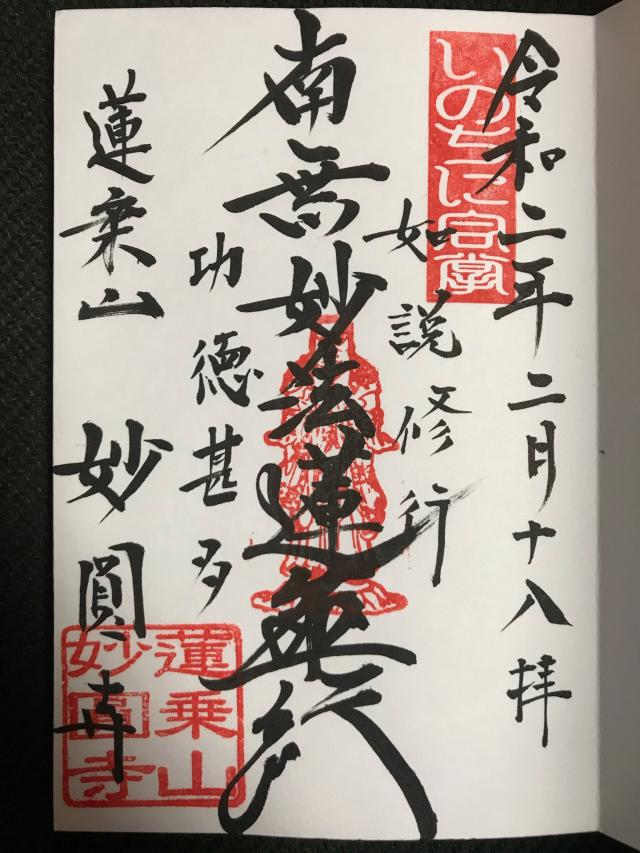 令和二年二月十八拝
いのちに合掌
如説修行
南無妙法蓮華経
功徳甚多
蓮乗山 妙圓寺
蓮乗山
妙圓寺